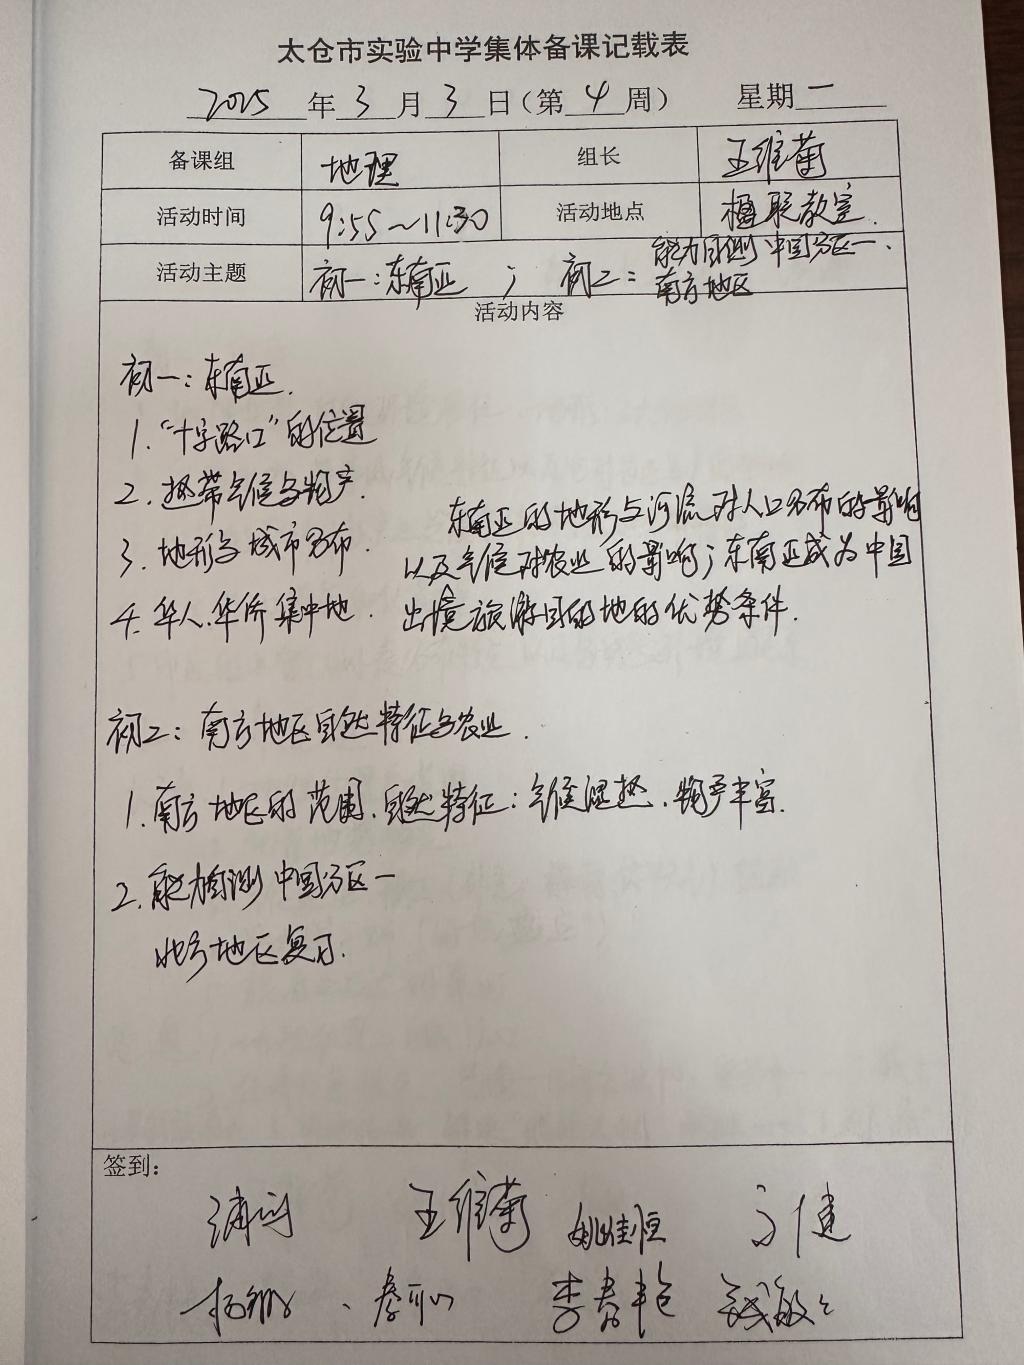 太仓市实验中学集体备课记载表
2025年3月3日(第4周) 星期一
备课组 地理 组长 王维菊
活动时间 9:55~11:30 活动地点 楹联教室.
活动主题 初一:东南亚 ; 初二: 能力自测 中国分区一、
南方地区
活动内容
初一:东南亚.
1.“十字路口”的位置
2.热带气候与物产.
3.地形与城市分布.
4.华人、华侨集中地.
东南亚的地形与河流对人口分布的影响
以及气候对农业的影响;东南亚成为中国
出境旅游目的地的优势条件.
初二:南方地区自然特征与农业.
1.南方地区的范围、自然特征:气候湿热、物产丰富.
2.能力自测 中国分区一
北方地区复习.
签到:
王维菊 姚佳恒
李春艳 钱敏